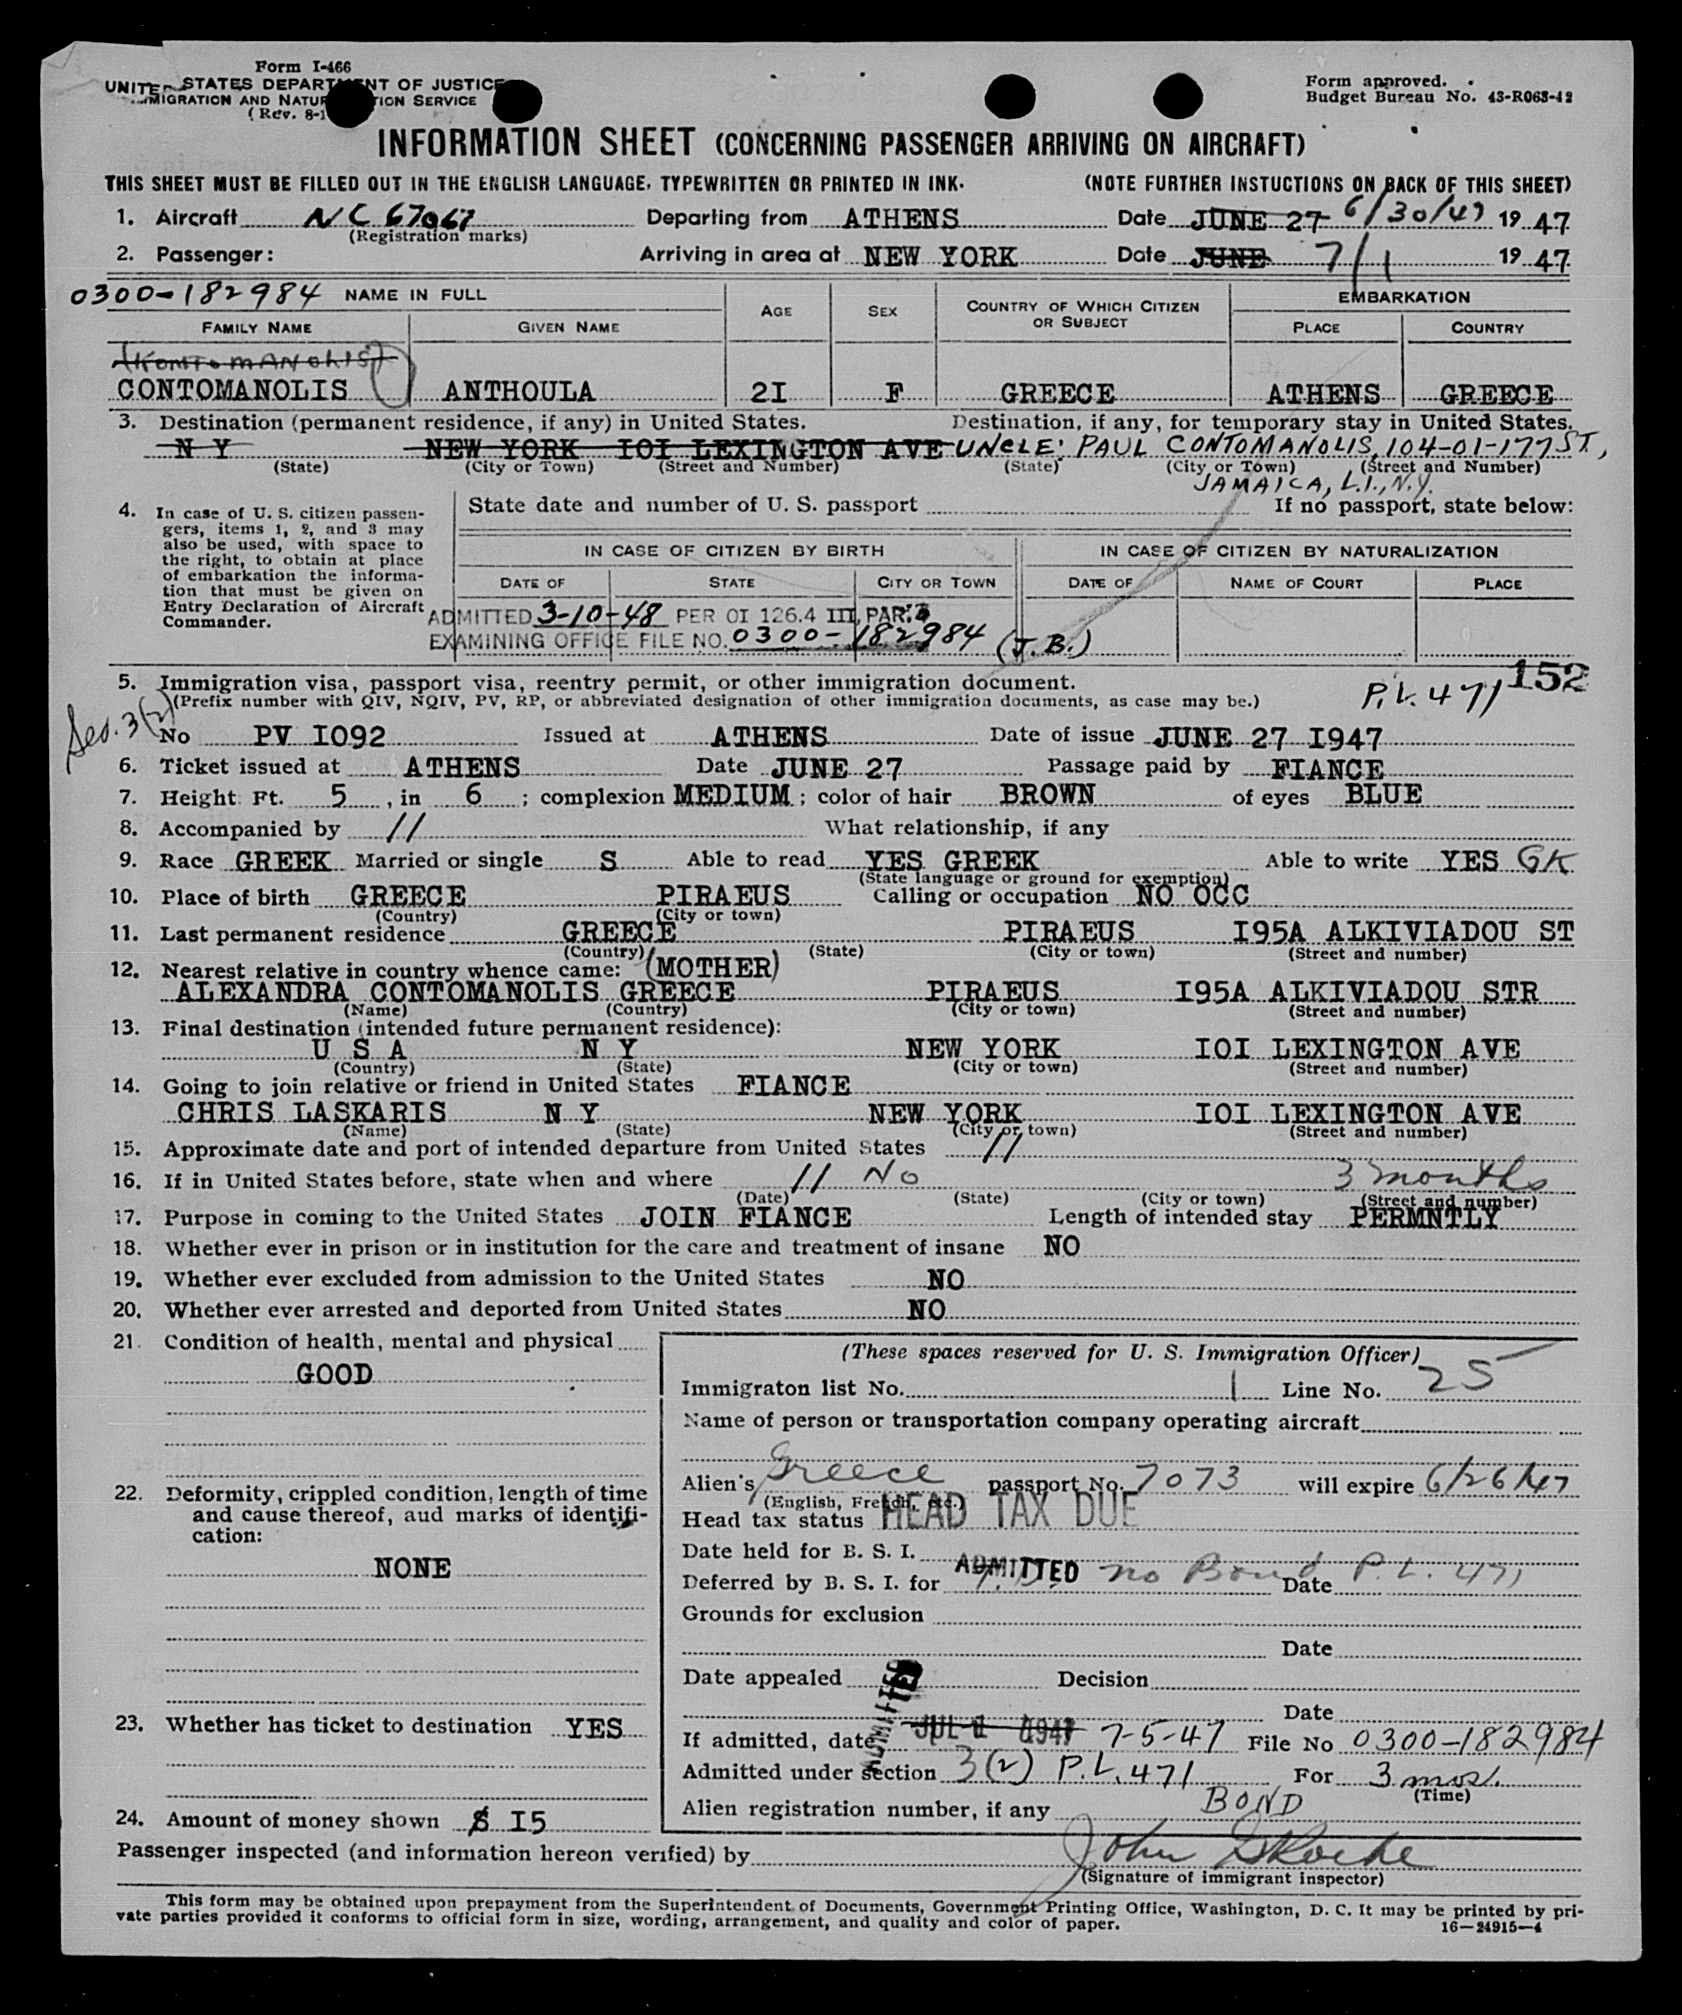 Form I-466
UNITED STATES DEPARTMENT OF JUSTICE
IMMIGRATION AND NATURALIZATION SERVICE
(Rev. 8-1
Form approved.
Budget Bureau No. 43-R063-42
INFORMATION SHEET (CONCERNING PASSENGER ARRIVING ON AIRCRAFT)
THIS SHEET MUST BE FILLED OUT IN THE ENGLISH LANGUAGE, TYPEWRITTEN OR PRINTED IN INK. (NOTE FURTHER INSTUCTIONS ON BACK OF THIS SHEET)
1. Aircraft NC 67067 Departing from ATHENS Date JUNE 27 6/30/47 19 47
(Registration marks)
2. Passenger: Arriving in area at NEW YORK Date JUNE 7/1 19 47
0300-182984 NAME IN FULL AGE SEX COUNTRY OF WHICH CITIZEN OR SUBJECT EMBARKATION
FAMILY NAME GIVEN NAME PLACE COUNTRY
(KONTOMANOLIS)
CONTOMANOLIS ANTHOULA 2I F GREECE ATHENS GREECE
3. Destination (permanent residence, if any) in United States. Destination, if any, for temporary stay in United States.
N Y NEW YORK IOI LEXINGTON AVE UNCLE: PAUL CONTOMANOLIS, 104-01-177 ST,
(State) (City or Town) (Street and Number) (State) (City or Town) (Street and Number)
JAMAICA, L.I., N.Y.
4. In case of U. S. citizen passengers, items 1, 2, and 3 may also be used, with space to the right, to obtain at place of embarkation the information that must be given on Entry Declaration of Aircraft Commander.
State date and number of U. S. passport If no passport, state below:
IN CASE OF CITIZEN BY BIRTH IN CASE OF CITIZEN BY NATURALIZATION
DATE OF STATE CITY OR TOWN DATE OF NAME OF COURT PLACE
ADMITTED 3-10-48 PER OI 126.4 III, PAR.
EXAMINING OFFICE FILE NO. 0300-182984 (J.B.)
5. Immigration visa, passport visa, reentry permit, or other immigration document. 152
(Prefix number with QIV, NQIV, PV, RP, or abbreviated designation of other immigration documents, as case may be.) P.L. 471
Sec. 3(2)
No PV I092 Issued at ATHENS Date of issue JUNE 27 I947
6. Ticket issued at ATHENS Date JUNE 27 Passage paid by FIANCE
7. Height: Ft. 5, in 6; complexion MEDIUM; color of hair BROWN of eyes BLUE
8. Accompanied by // What relationship, if any
9. Race GREEK Married or single S Able to read YES GREEK Able to write YES GK
(State language or ground for exemption)
10. Place of birth GREECE PIRAEUS Calling or occupation NO OCC
(Country) (City or town)
11. Last permanent residence GREECE PIRAEUS I95A ALKIVIADOU ST
(Country) (State) (City or town) (Street and number)
12. Nearest relative in country whence came: (MOTHER)
ALEXANDRA CONTOMANOLIS GREECE PIRAEUS I95A ALKIVIADOU STR
(Name) (Country) (City or town) (Street and number)
13. Final destination (intended future permanent residence):
U S A N Y NEW YORK IOI LEXINGTON AVE
(Country) (State) (City or town) (Street and number)
14. Going to join relative or friend in United States FIANCE
CHRIS LASKARIS N Y NEW YORK IOI LEXINGTON AVE
(Name) (State) (City or town) (Street and number)
15. Approximate date and port of intended departure from United States //
16. If in United States before, state when and where // No 3 months
(Date) (State) (City or town) (Street and number)
17. Purpose in coming to the United States JOIN FIANCE Length of intended stay PERMNTLY
18. Whether ever in prison or in institution for the care and treatment of insane NO
19. Whether ever excluded from admission to the United States NO
20. Whether ever arrested and deported from United States NO
21. Condition of health, mental and physical
GOOD
22. Deformity, crippled condition, length of time and cause thereof, aud marks of identification:
NONE
23. Whether has ticket to destination YES
24. Amount of money shown $ I5
(These spaces reserved for U. S. Immigration Officer)
Immigraton list No. 1 Line No. 25
Name of person or transportation company operating aircraft
Alien's Greece passport No. 7073 will expire 6/26/47
(English, French, etc.)
Head tax status HEAD TAX DUE
Date held for B. S. I.
Deferred by B. S. I. for ADMITTED no Bond Date P.L. 471
Grounds for exclusion
Date
Date appealed Decision
Date
ADMITTED
If admitted, date JUL 1 1947 7-5-47 File No 0300-182984
Admitted under section 3(2) P.L. 471 For 3 mos.
(Time)
Alien registration number, if any BOND
Passenger inspected (and information hereon verified) by John
(Signature of immigrant inspector)
This form may be obtained upon prepayment from the Superintendent of Documents, Government Printing Office, Washington, D. C. It may be printed by pri-
vate parties provided it conforms to official form in size, wording, arrangement, and quality and color of paper. 16—24915—4